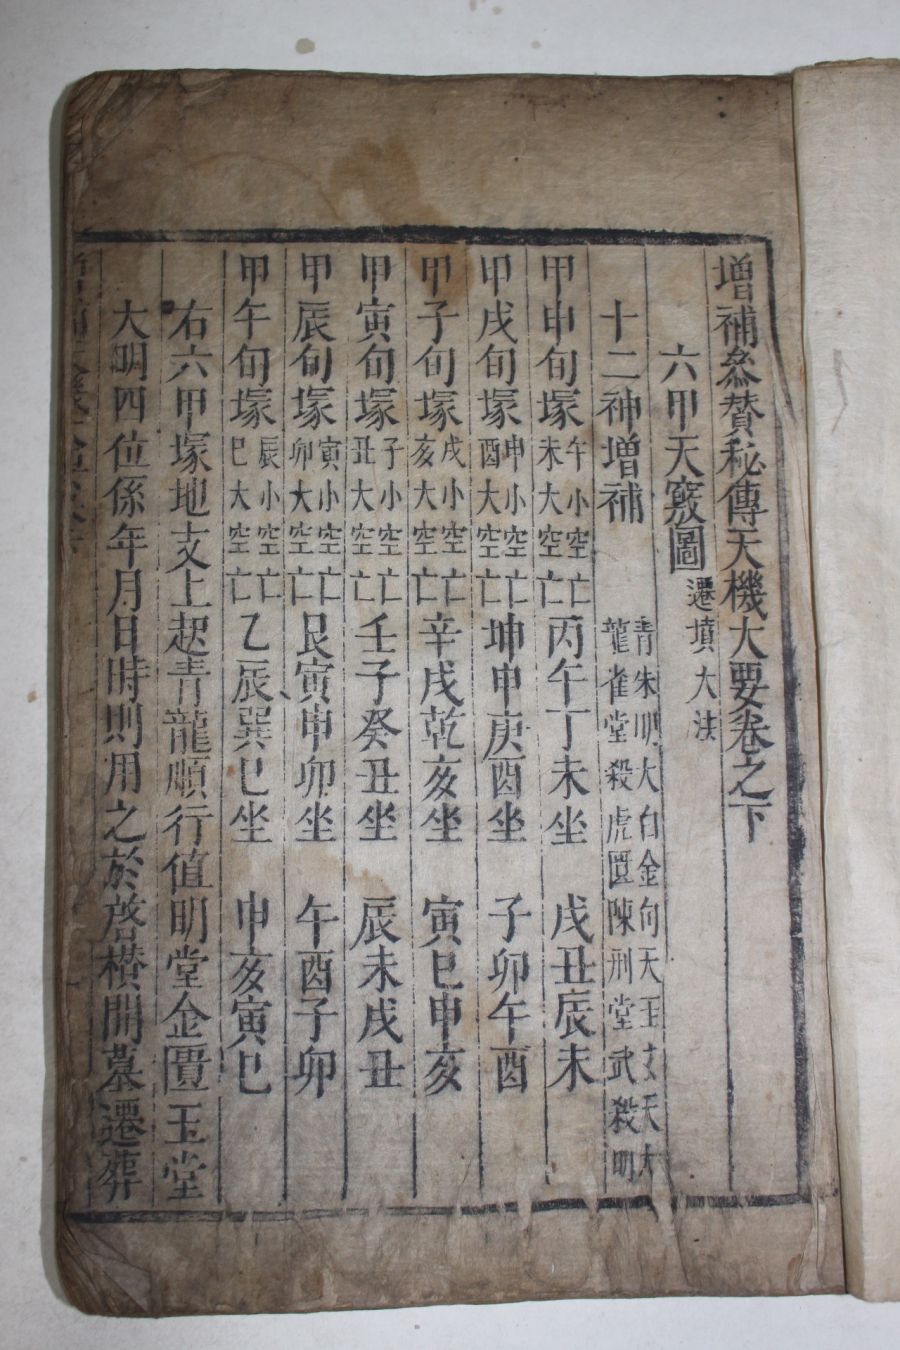 增補叅贊秘傳天機大要卷之下
六甲天竅圖 遷墳大法
十二神增補 青朱明大白金句天玉玄天大
龍雀堂殺虎匱陳刑堂武殺明
甲申旬塚 午小空亡 未大空亡 丙午丁未坐 戌丑辰未
甲戌旬塚 申小空亡 酉大空亡 坤申庚酉坐 子卯午酉
甲子旬塚 戌小空亡 亥大空亡 辛戌乾亥坐 寅巳申亥
甲寅旬塚 子小空亡 丑大空亡 壬子癸丑坐 辰未戌丑
甲辰旬塚 寅小空亡 卯大空亡 艮寅申卯坐 午酉子卯
甲午旬塚 辰小空亡 巳大空亡 乙辰巽巳坐 申亥寅巳
右六甲塚地支上起青龍順行值明堂金匱玉堂
大明四位係年月日時則用之於啓欑開墓遷葬